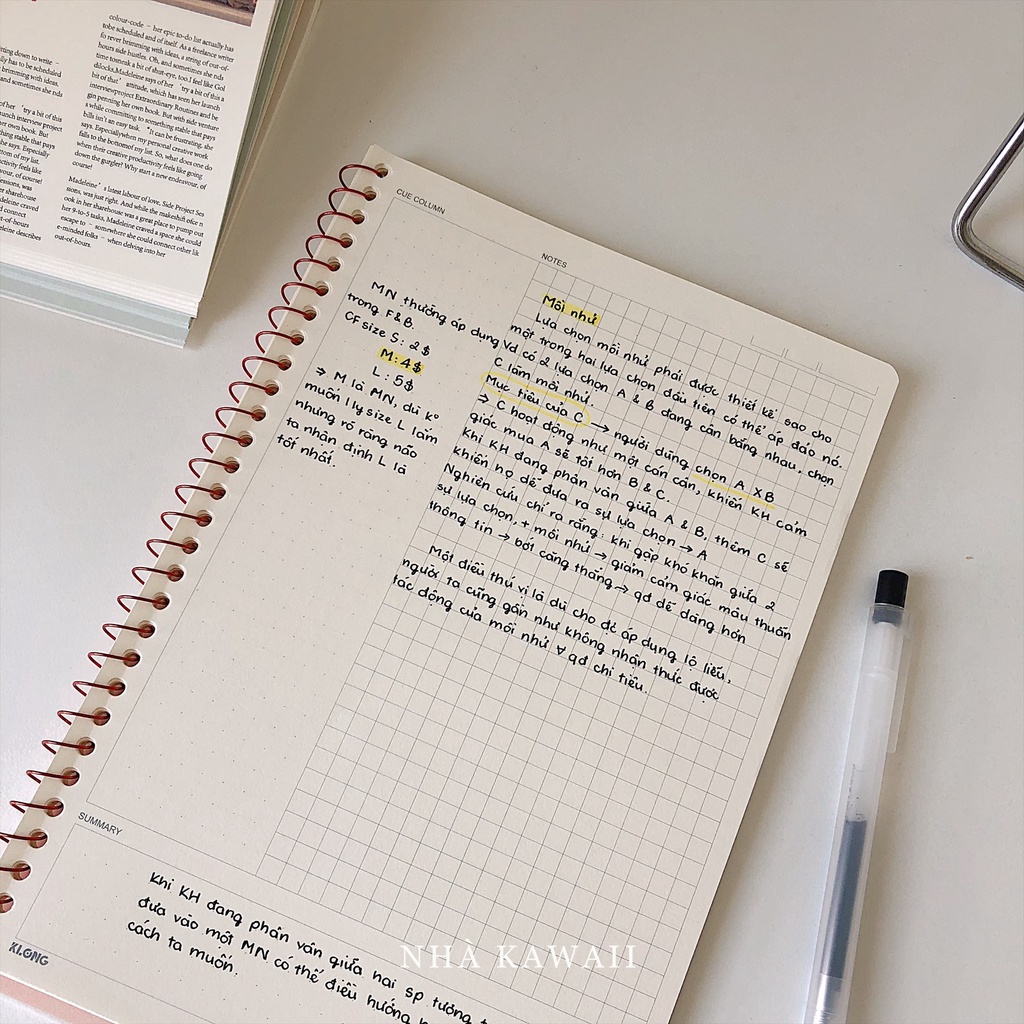 colour-code – her epic to-do list actually has
tobe scheduled and of itself. As a freelance writer
fo rever brimming with ideas, a string of out-of-
hours side hustles. Oh, and sometimes she nds
time tosneak a bit of shut-eye, too.I feel like Gol
dilocks,Madeleine says of her 'try a bit of this a
bit of that' attitude, which has seen her launch
interviewproject Extraordinary Routines and be
gin penning her own book. But with side venture
s while committing to something stable that pays
bills isn't an easy task. "It can be frustrating, she
says. Especiallywhen my personal creative work
falls to the bottomof my list. So, what does one do
when their creative productivity feels like going
down the gurgler? Why start a new endeavour, of
course!
Madeleine's latest labour of love, Side Project Ses
sions, was just right. And while the makeshift ofce n
ook in her sharehouse was a great place to pump out
her 9-to-5 tasks, Madeleine craved a space she could
escape to – somewhere she could connect other lik
e-minded folks – when delving into her
out-of-hours.
CUE COLUMN
MN thường áp dụng
trong F&B.
CF size S: 2$
M: 4$
L: 5$
⇒ M là MN, dù ko
muốn 1 ly size L lắm
nhưng rõ ràng não
ta nhận định L là
tốt nhất.
NOTES
Mồi nhử
Lựa chọn mồi nhử phải được thiết kế sao cho
một trong hai lựa chọn đầu tiên có thể áp đảo nó.
Vd có 2 lựa chọn A & B đang cân bằng nhau, chọn
C làm mồi nhử.
Mục tiêu của C → người dùng chọn A X B
⇒ C hoạt động như một cán cân, khiến KH cảm
giác mua A sẽ tốt hơn B & C.
Khi KH đang phân vân giữa A & B, thêm C sẽ
khiến họ dễ đưa ra sự lựa chọn → A
Nghiên cứu chỉ ra rằng: khi gặp khó khăn giữa 2
sự lựa chọn, + mồi nhử → giảm cảm giác mâu thuẫn
thông tin → bớt căng thẳng → qđ dễ dàng hơn
Một điều thú vị là dù cho đc áp dụng lộ liễu,
người ta cũng gần như không nhận thức được
tác động của mồi nhử ∀ qđ chi tiêu.
SUMMARY
Khi KH đang phân vân giữa hai sp tương
đưa vào một MN có thể điều hướng
cách ta muốn.
KLONG
NHÀ KAWAII